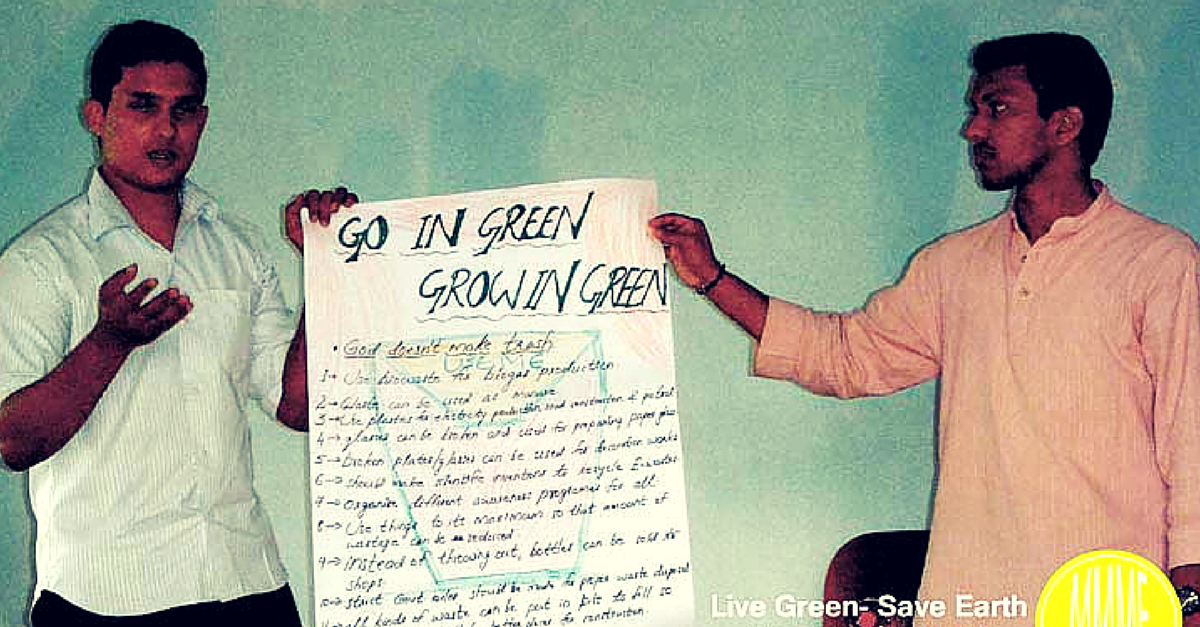 GO IN GREEN
GROW IN GREEN
• God doesn't make trash
USE ME
1→ Use biowaste for biogas production.
2→ Waste can be used as manure
3→ Use plastics for electricity production, road construction & petrol.
4→ glasses can be broken and used for preparing paper
5→ broken plates/glasses can be used for decoration works
6→ should make scientific inventions to recycle
7→ Organise different awareness programes for all.
8→ Use things to its maximum so that amount of
wastage can be reduced
9→ instead of throwing out, bottles can be sold to
shops.
10→ strict Govt order should be made for paper waste disposal
all kinds of waste can be put in pits to fill so
for construction.
Live Green- Save Earth